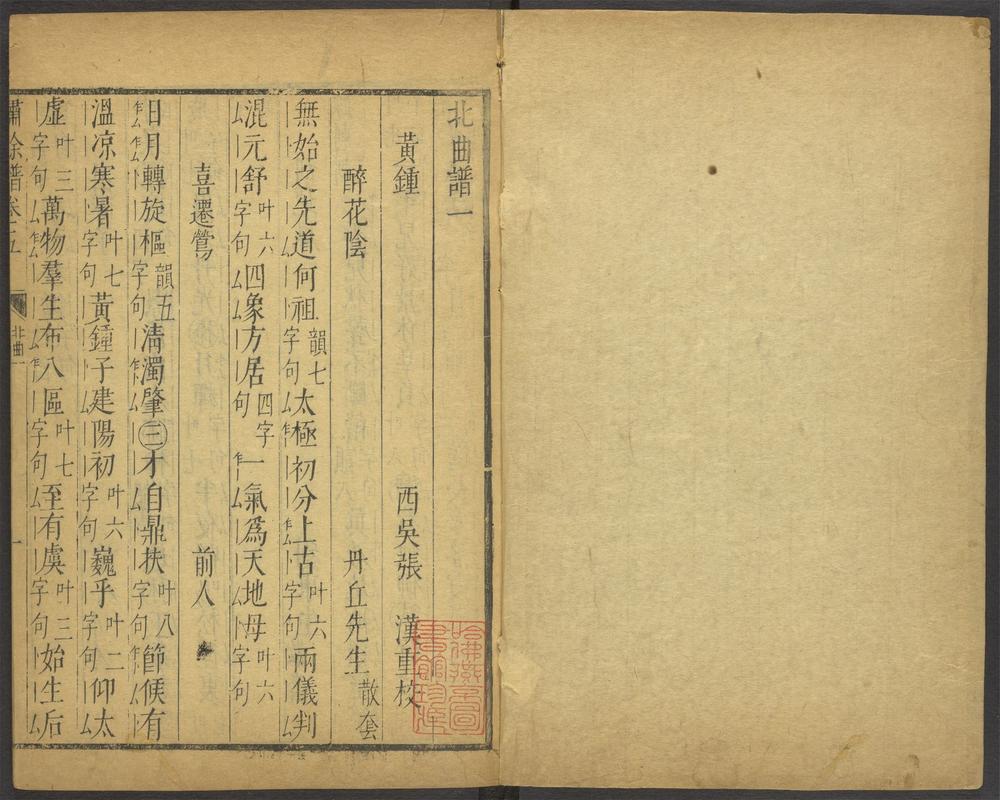 北曲譜一
黃鍾 西吳張 漢重校
醉花陰 丹丘先生散套
無始之先道何祖韻七字句太極初分上古叶六字句兩儀判
混元舒叶六字句四象方居四字句一氣爲天地母叶六字句
喜遷鶯 前人
日月轉旋樞韻五字句淸濁肇三才自鼎扶叶八字句節候有
溫凉寒暑叶七字句黃鍾子建陽初叶六字句巍乎叶二字句仰太
虛叶三字句萬物羣生布八區叶七字句至有虞叶三字句始生后
嘯餘譜卷十五 北曲一 一